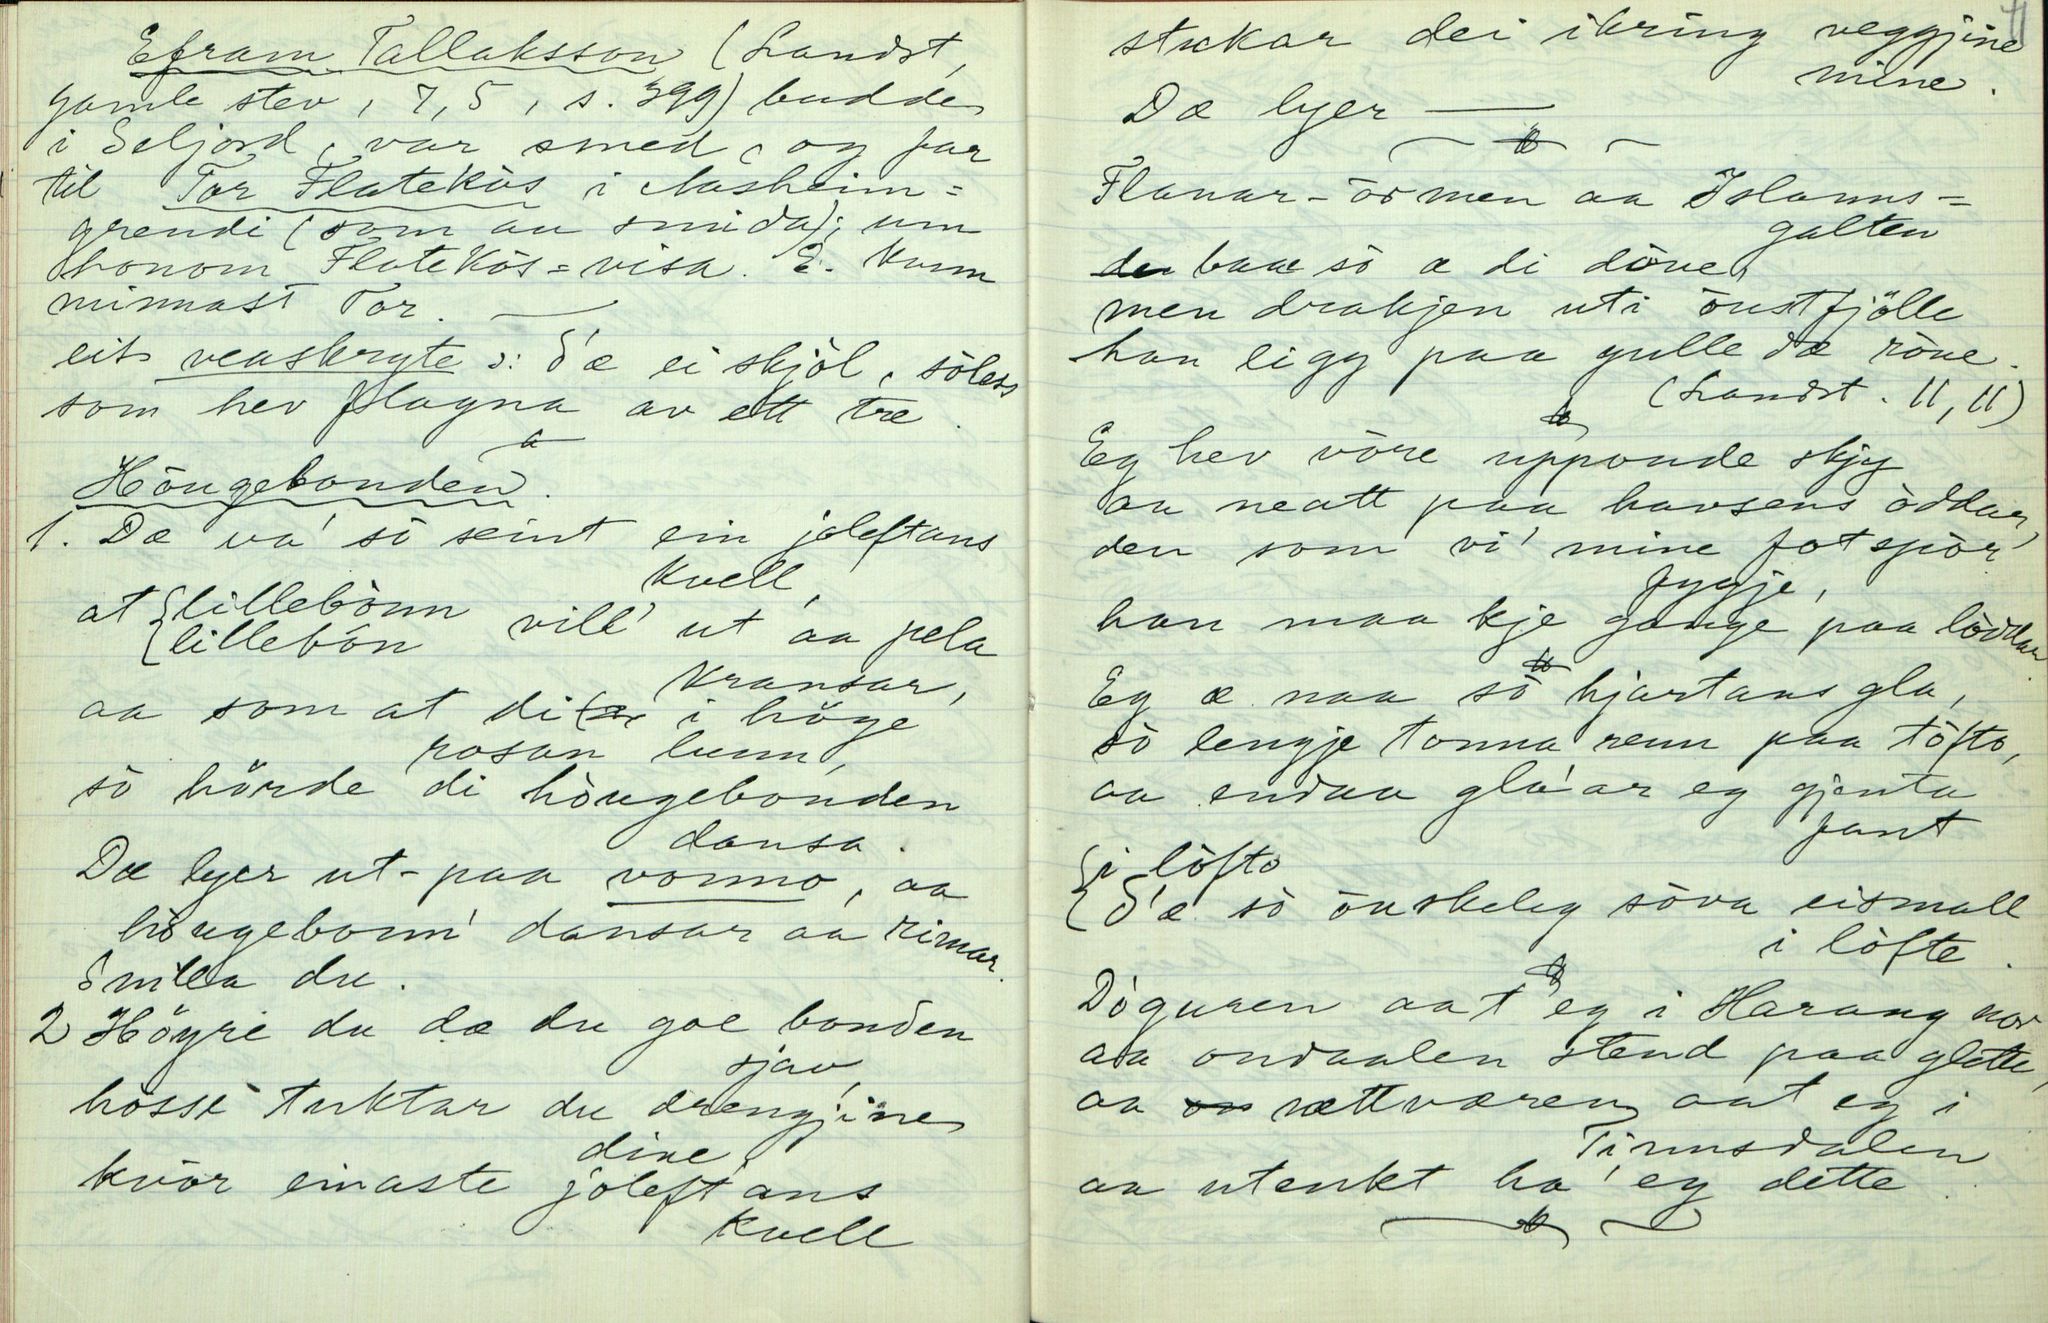 Efram Tallaksson (Landst,
gamle stev, 7,5, s. 399) budde
i Seljord, var smed, og far
til Tor Flatekôs i Aasheim=
grendi (som au smida); um
honom Flatekôs=visa. E. kunn
minnast Tor. —
eit veaskryte ɔ: d'æ ei skjôl, sòless
som hev flagna av ett tre.
Hòugebonden.
1. Dæ va' sò seint ein joleftans
kvell,
at {lillebònn
{lillebón vill' ut aa pela
kransar,
aa som at di i höge
rosan lunn,
sò hörde di hòugebonden
dansa.
Dæ lyer ut-paa vonno, aa
hòugebonn' dansar aa rimar.
Smilla du.
2 Höyre du dæ du goe bonden
sjav,
hòsse tuktar du drengjine
dine
kvòr einaste joleftans
kvell
stukar dei ikring veggjine
mine.
Dæ lyer —
Flanar-òrmen aa Islanns=
galten
baae sò æ di döve,
men drakjen uti òustfjölle
han ligg paa gulle dæ röue.
(Landst. 11, 11)
Eg hev vòre upponde skjy
aa neatt paa havsens òddar,
den som vi' mine fotspòr
fygje,
han maa kje gange paa lòddar.
Eg æ naa sò hjartans gla,
sò lengje tonna renn paa tòfto,
aa endaa gla'ar eg gjenta
fant
{i lòfto
{d'æ sò önskeleg söva eismall
i lòfte.
Dòguren aat eg i Harang nor
aa ondaalen stend paa glette,
aa nættværen aat eg i
Tinnsdalen
aa utenkt ha' eg dette.